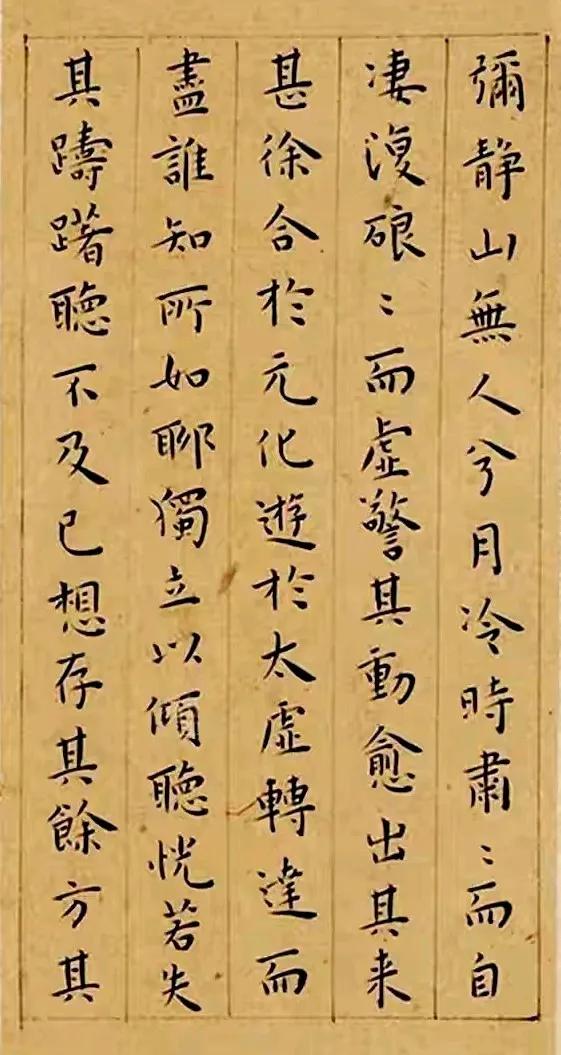 彌静山無人兮月冷時肅〻而自
凄復硠〻而虛警其動愈出其来
甚徐合於元化遊於太虛轉達而
盡誰知所如聊獨立以傾聽恍若失
其躊躇聽不及已想存其餘方其